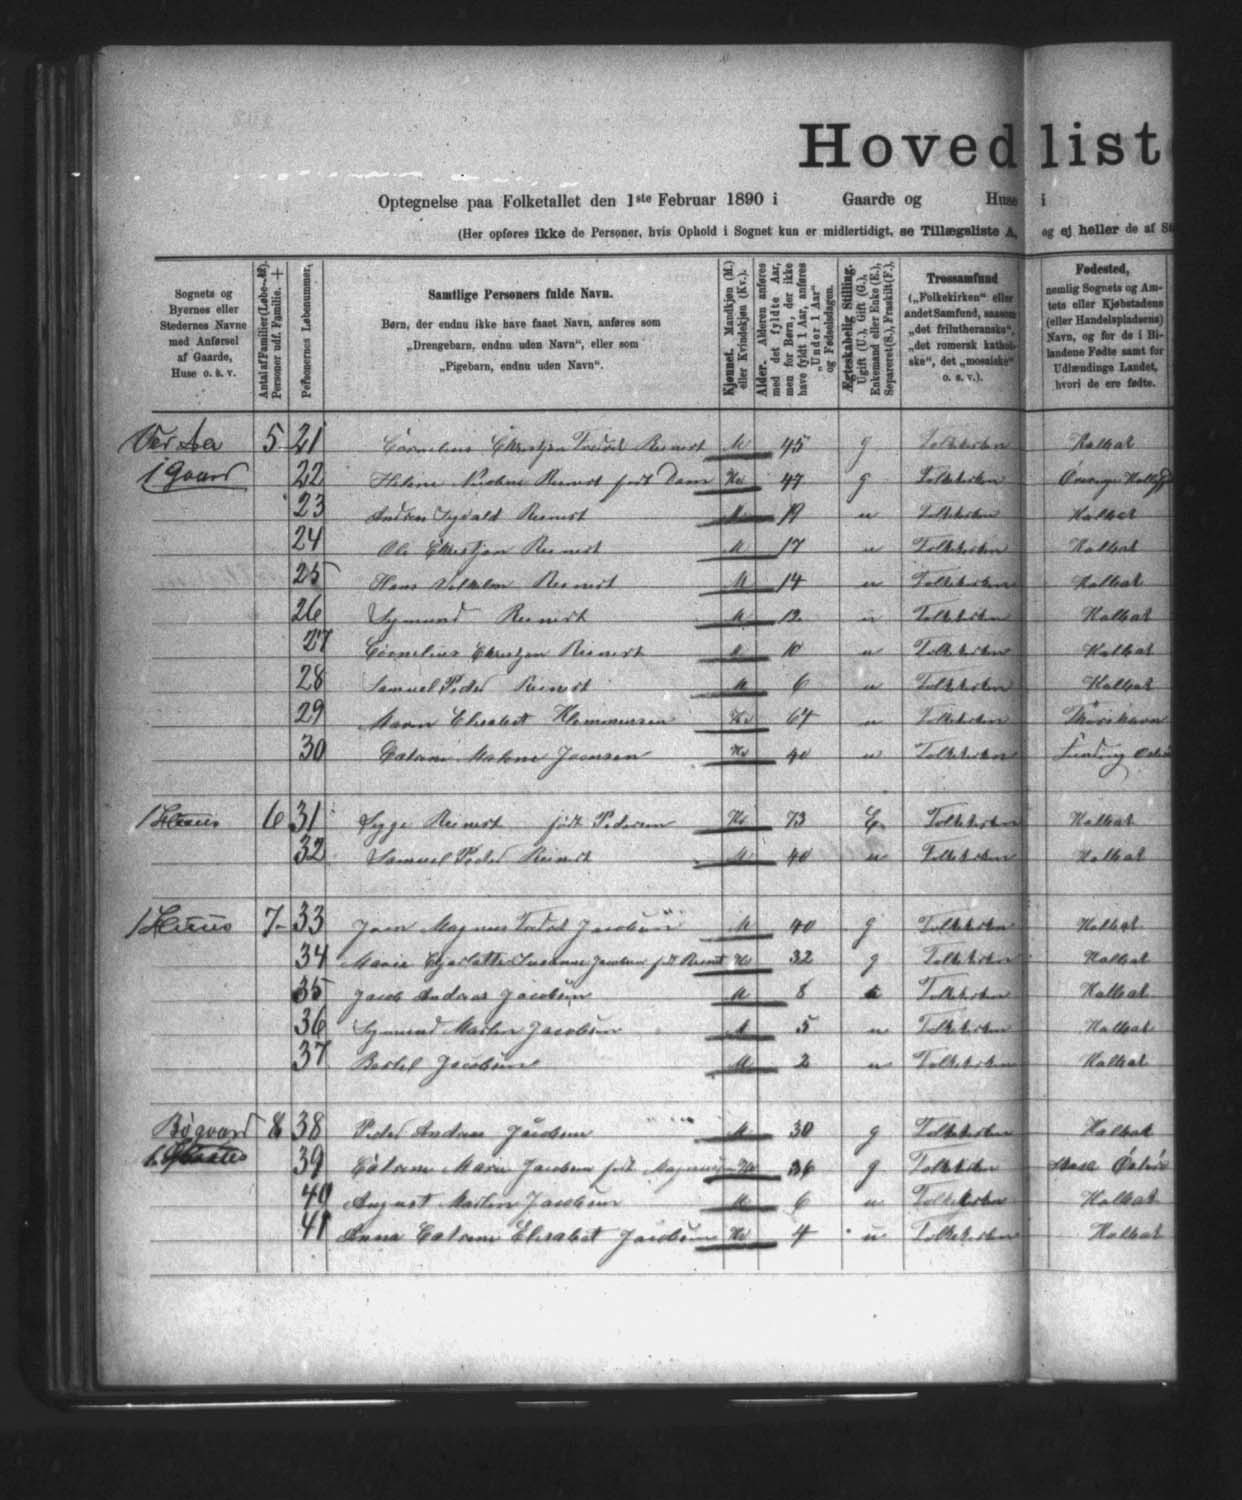 Hovedlist
Optegnelse paa Folketallet den 1ste Februar 1890 i Gaarde og Huse i
(Her opføres ikke de Personer, hvis Ophold i Sognet kun er midlertidigt, se Tillægsliste A, og ej heller de af
Sognets og
Byernes eller
Stedernes Navne
med Anførsel
af Gaarde,
Huse o. s. v.
Antal af Familier (Løbe-№).
Personer udf. Familie. +
Personernes Løbenummer.
Samtlige Personers fulde Navn.
Børn, der endnu ikke have faaet Navn, anføres som
„Drengebarn, endnu uden Navn“, eller som
„Pigebarn, endnu uden Navn“.
Kjønnet. Mandkjøn (M.)
eller Kvindekjøn (Kv.).
Alder. Alderen anføres
med det fyldte Aar,
men for Børn, der ikke
have fyldt 1 Aar, anføres
„Under 1 Aar“
og Fødselsdagen.
Ægteskabelig Stilling.
Ugift (U.), Gift (G.),
Enkemand eller Enke (E.),
Separeret (S.), Fraskilt (F.).
Trossamfund
(„Folkekirken“ eller
andet Samfund, saasom
„det frilutheranske“,
„det romersk kathol-
ske“, det „mosaiske“
o. s. v.).
Fødested,
nemlig Sognets og Am-
tets eller Kjøbstadens
(eller Handelspladsens)
Navn, og for de i Bi-
landene Fødte samt for
Udlændinge Landet,
hvori de ere fødte.
5 21 Cornelius Christjan Reinert M 45 g Folkekirken Kalbak
1 Gaard 22 Helene Reinert født Dam Kv 47 g Folkekirken
23 Andreas Reinert 19 u Folkekirken Kalbak
24 Ole Christjan Reinert M 17 u Folkekirken Kalbak
25 Hans Vilhelm Reinert M 14 u Folkekirken Kalbak
26 Symund Reinert M 12 u Folkekirken Kalbak
27 Cornelius Christjan Reinert 10 u Folkekirken Kalbak
28 Samuel Peder Reinert M 6 u Folkekirken Kalbak
29 Maren Elisabet Klemmensen Kv 64 u Folkekirken Thorshavn
30 Catrine Malene Joensen Kv 40 u Folkekirken
1 Huus 6 31 Reinert født Pedersen Kv 73 E Folkekirken Kalbak
32 Samuel Peder Reinert M 40 u Folkekirken Kalbak
1 Huus 7 33 Joen Magnus Jacobsen M 40 g Folkekirken Kalbak
34 Maria Susanne Jacobsen født Reinert Kv 32 g Folkekirken Kalbak
35 Jacob Andreas Jacobsen M 8 Folkekirken Kalbak
36 Symund Martin Jacobsen M 5 u Folkekirken Kalbak
37 Bertel Jacobsen M 2 u Folkekirken Kalbak
Bøgaard 8 38 Peder Andreas Jacobsen M 30 g Folkekirken Kalbak
39 Catrine Marie Jacobsen født Kv 36 g Folkekirken
40 August Martin Jacobsen M 6 u Folkekirken Kalbak
41 Anna Catrine Elisabet Jacobsen Kv 4 u Folkekirken Kalbak